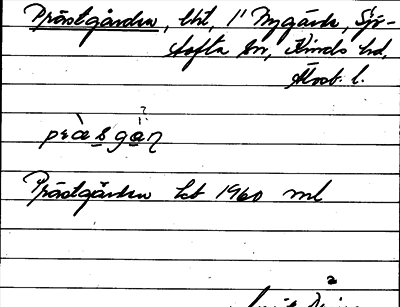 Prästgården, lht, 1' Nygärde, Sjö-
tofta sn, Kinds hd,
Älvsb. l.
präsgan
Prästgården kb 1960 ml